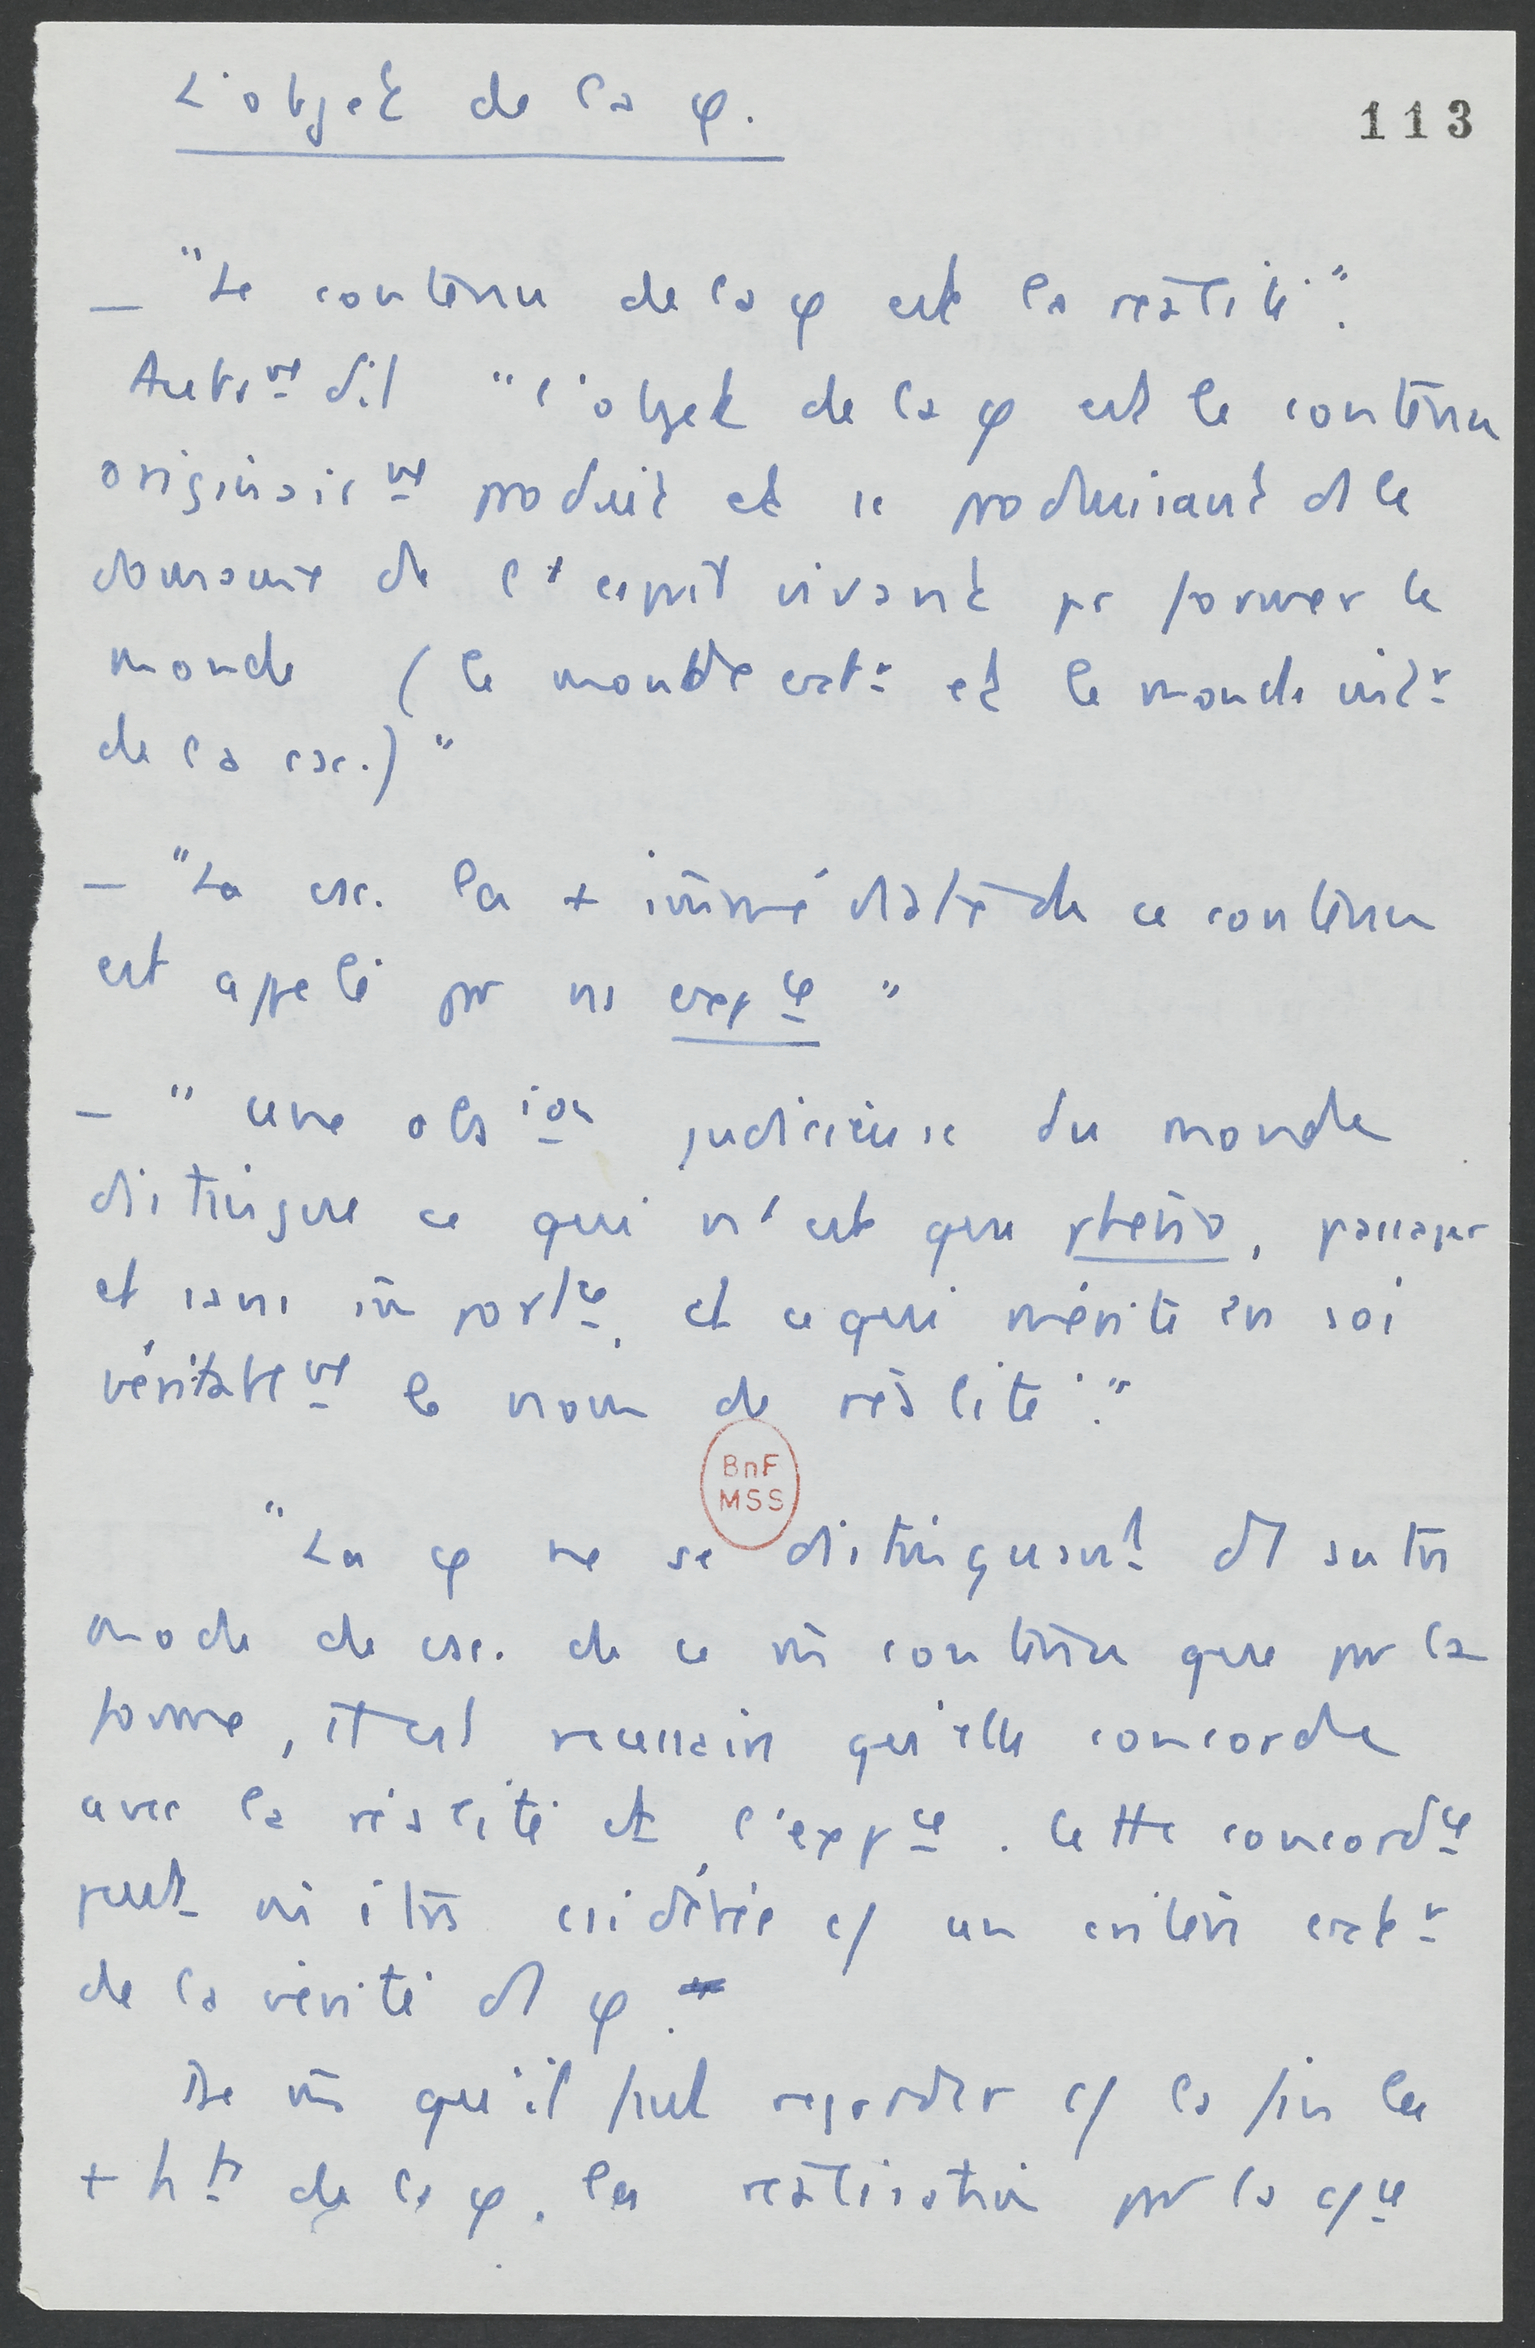 L'objet de la φ.
113
— "Le contenu de la φ est la réalité".
Autrᵐᵉ dit "l'objet de la φ est le contenu
originairᵐᵉ produit et se produisant ds le
domaine de l'esprit vivant pr former le
monde (le monde extʳ et le monde intʳ
de la csc.)"
— "La csc. la + immédiate de ce contenu
est appelé par ns expᶜᵉ"
— "une obsⁱᵒⁿ judicieuse du monde
distingue ce qui n'est que phéno, passager
et sans importᶜᵉ, et ce qui mérite en soi
véritablᵐᵉ le nom de réalité."
BnF
MSS
"La φ ne se distinguant ds autrs
mode de csc. de ce m̂ contenu que par la
forme, il est nécessaire qu'elle concorde
avec la réalité et l'expᶜᵉ. Cette concordᶜᵉ
peut m̂ êtrs csidérée c/ un critère extʳ
de la vérité ds φ.
De m̂ qu'il faut regarder c/ la fin la
+ hᵗᵉ de la φ, la réalisation par la c/ᶜᵉ